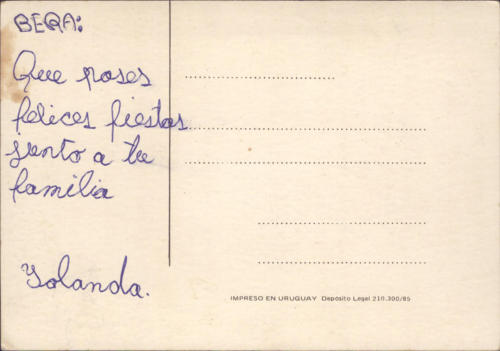 BEBA:
Que pases
felices fiestas
junto a tu
familia
Yolanda.
IMPRESO EN URUGUAY Depósito Legal 210.300/85